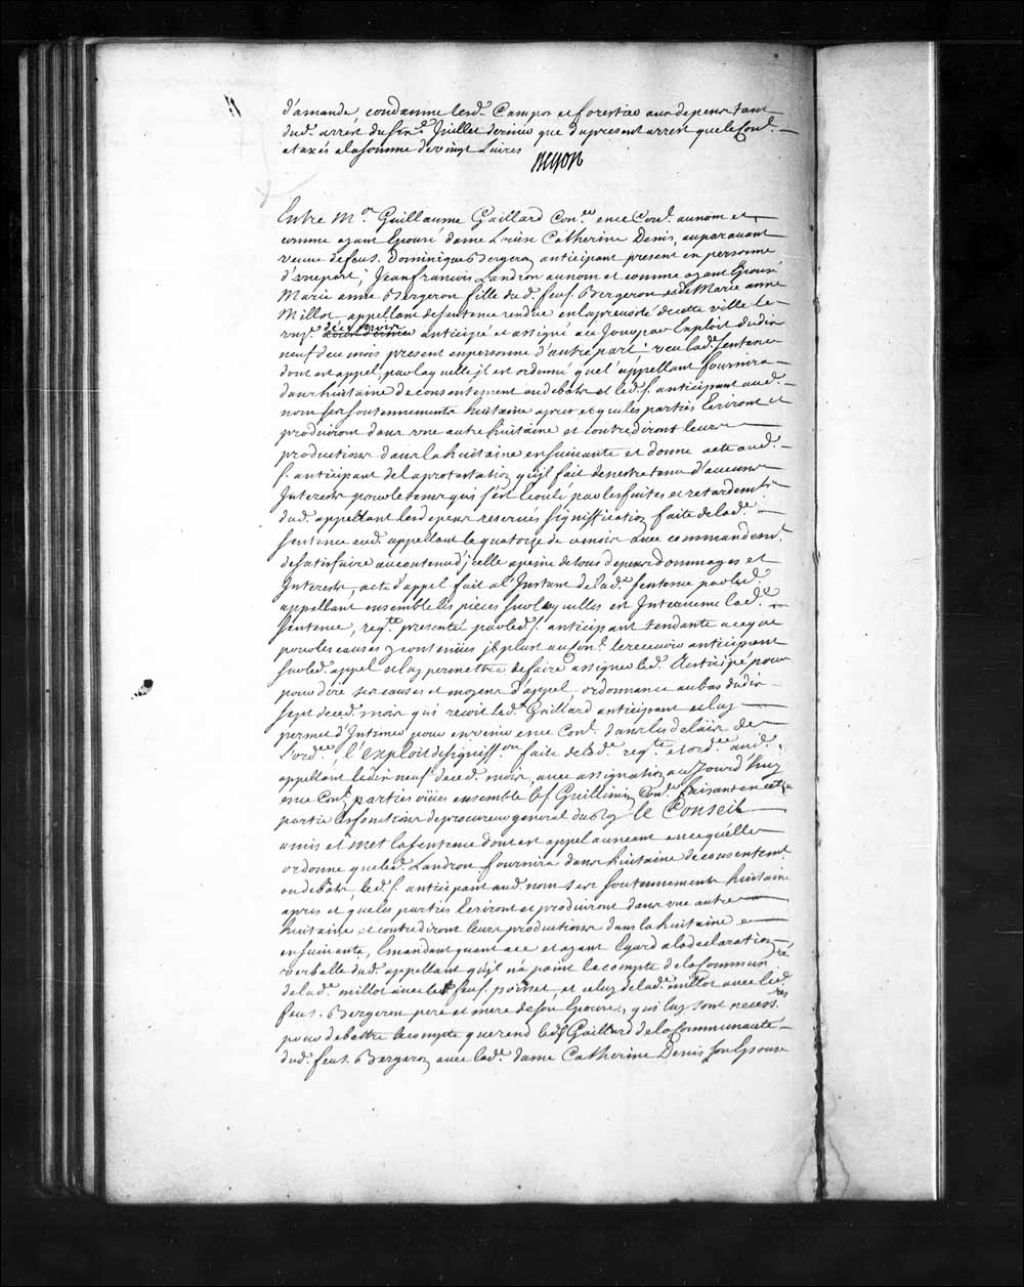 d'amande, condamne lesd. Campos et forestier aux depens tant
dud. arrest du six.e Juillet dernier que du present arrest que le Con.l
a taxés a la somme de vingt Livres
Begon
Entre M.re Guillaume Gaillard Con.er en ce Con.l au nom et
comme ayant Epousé dame Louise Catherine Denis, auparavant
veuve de feu s. Dominique Bergeron anticipant present en personne
d'une part; Jean francois Landron au nom et comme ayant Epousé
Marie anne Bergeron fille dud. feu s. Bergeron et de Marie anne
Millot appellant de sentence rendue en la prevosté de cette ville le
de ce mois anticipé et assigné a ce Jour par Exploit du dix
neuf de ce mois present en personne d'autre part; veu lad. sentence
dont est appel, par laquelle il est ordonné que l'appellant fournira
dans huitaine de consentement ou debats et led. s. anticipant aud.
nom ses soutennements huitaine apres et que les parties Ecriront et
produiront dans une autre huitaine et contrediront leurs
productions dans la huitaine ensuivante et donne acte aud.
s. anticipant de la protestation qu'il fait de n'estre tenu d'aucuns
Interests pour le tems qui s'est Ecoulé par les fuites et retardem.ts
dud. appellant les depens reservés signiffication faite de lad.
sentence aud. appellant le quatorze de ce mois avec commandem.t
de satisfaire au contenu d'jcelle a peine de tous depens dommages et
Interests, acte d'appel fait a l'Instant de lad. sentence par led.
appellant ensemble les pieces sur lesquelles est Intervenue lad.
sentence, req.te presenté par led. s. anticipant tendante a ce que
pour les causes y contenües jl plust au Con.l le recevoir anticipant
sur led. appel et luy permettre de faire assigner led. Anticipé pour
pour dire ses causes et moyens d'appel, ordonnance au bas du dix
sept de ced. mois qui recoit led. Gaillard anticipant et luy
permet d'Intimer pour en venir en ce Con.l dans les delais de
l'ord.ce, l'exploit de signiff.on faite desd. req.te et ord.ce aud.
appellant le dix neuf de ced. mois, avec assignation au Jourd'huy
en ce Con.l parties oüies ensemble le s. Guillimin Con.er faisant en cette
partie les fonctions de procureur general du Roy le Conseil
a mis et met la sentence dont est appel au neant en ce qu'elle
ordonne que led. Landron fournira dans huitaine de consentem.t
ou debats led. s. anticipant aud. nom ses soutennements huitaine
apres et que les parties Ecriront et produiront dans une autre
huitaine et contrediront leurs productions dans la huitaine
ensuivante, Emandant quant a ce et ayant Egard a la declaration
verballe dud. appellant qu'il n'a point le compte de la Communauté
de lad. millot avec le feu s. et celuy de lad. millot avec led.
feu s. Bergeron pere et mere de son Epouse, qui luy sont necess.res
pour debattre le compte que rend led. s. Gaillard de la Communauté
dud. feu s. Bergeron avec lad. dame Catherine Denis son Epouse